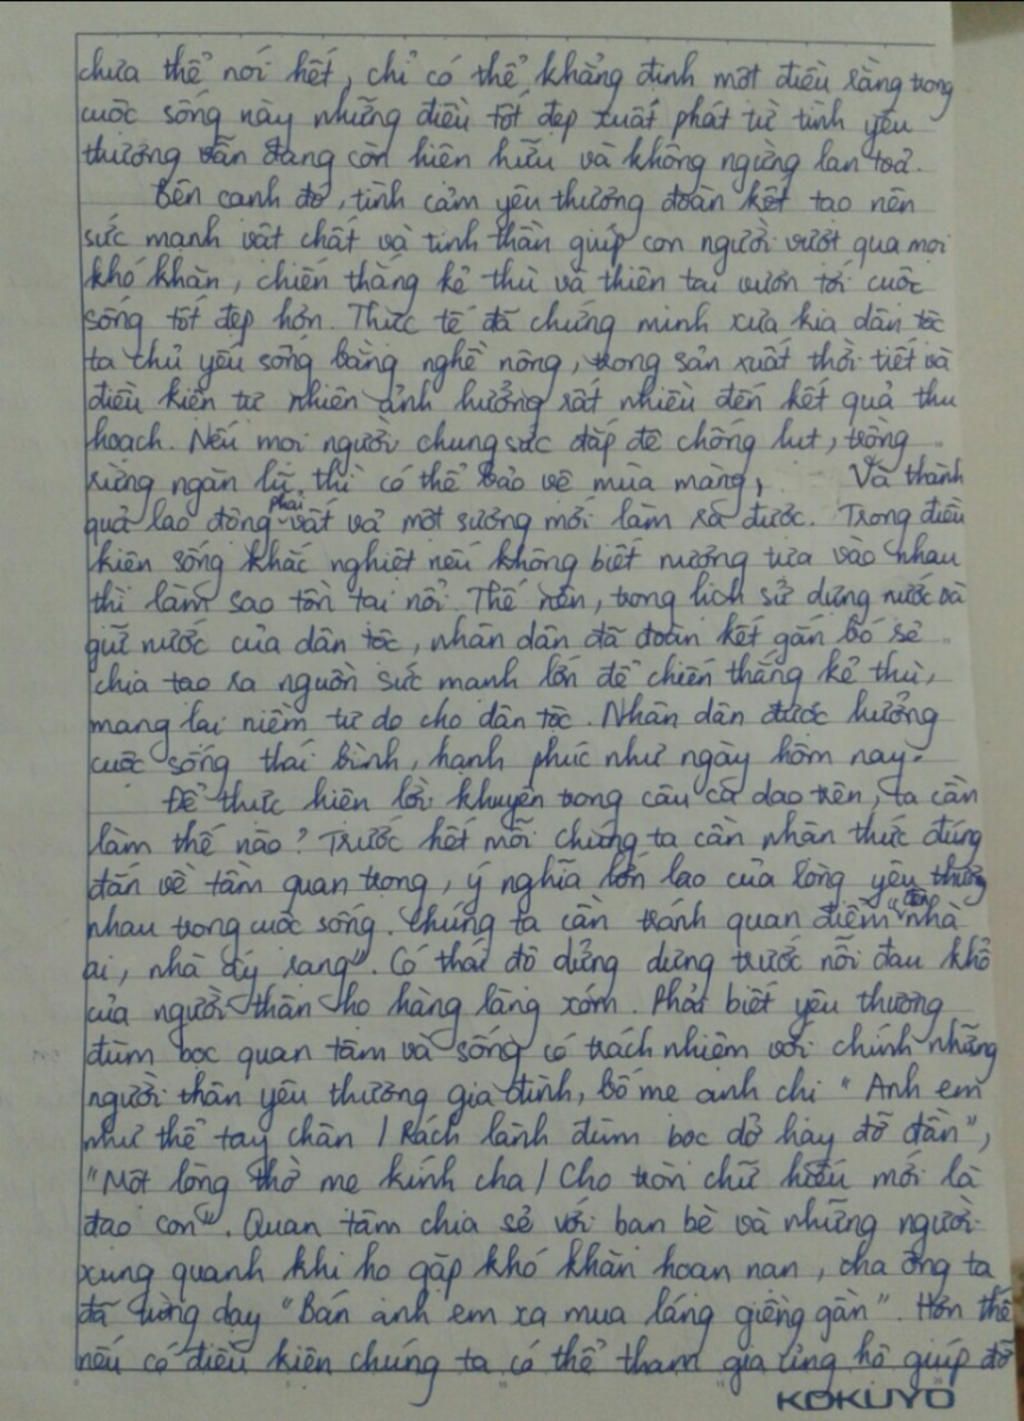 chưa thể nói hết, chỉ có thể khẳng định một điều rằng trong
cuộc sống này những điều tốt đẹp xuất phát từ tình yêu
thương vẫn đang còn hiện hữu và không ngừng lan toả.
Bên cạnh đó, tình cảm yêu thương đoàn kết tạo nên
sức mạnh vật chất và tinh thần giúp con người vượt qua mọi
khó khăn, chiến thắng kẻ thù và thiên tai vươn tới cuộc
sống tốt đẹp hơn. Thực tế đã chứng minh xưa kia dân tộc
ta chủ yếu sống bằng nghề nông, trong sản xuất thời tiết và
điều kiện tự nhiên ảnh hưởng rất nhiều đến kết quả thu
hoạch. Nếu mọi người chung sức đắp đê chống lụt, trồng
rừng ngăn lũ thì có thể bảo vệ mùa màng, Và thành
quả lao động phải vất vả một sương mới làm ra được. Trong điều
kiện sống khắc nghiệt nếu không biết nương tựa vào nhau
thì làm sao tồn tại nổi. Thế nên, trong lịch sử dựng nước và
giữ nước của dân tộc, nhân dân đã đoàn kết gắn bó sẻ
chia tạo ra nguồn sức mạnh lớn để chiến thắng kẻ thù,
mang lại niềm tự do cho dân tộc. Nhân dân được hưởng
cuộc sống thái bình, hạnh phúc như ngày hôm nay.
Để thực hiện lời khuyên trong câu ca dao trên, ta cần
làm thế nào? Trước hết mỗi chúng ta cần nhận thức đúng
đắn về tầm quan trọng, ý nghĩa lớn lao của lòng yêu thương
nhau trong cuộc sống. Chúng ta cần tránh quan điểm "đèn nhà
ai, nhà ấy rạng". Có thái độ dửng dưng trước nỗi đau khổ
của người thân họ hàng làng xóm. Phải biết yêu thương
đùm bọc quan tâm và sống có trách nhiệm với chính những
người thân yêu thương gia đình, bố mẹ anh chị "Anh em
như thể tay chân / Rách lành đùm bọc dở hay đỡ đần",
"Một lòng thờ mẹ kính cha / Cho tròn chữ hiếu mới là
đạo con". Quan tâm chia sẻ với bạn bè và những người
xung quanh khi họ gặp khó khăn hoạn nạn, cha ông ta
đã từng dạy "Bán anh em xa mua láng giềng gần". Hơn thế
nếu có điều kiện chúng ta có thể tham gia ủng hộ giúp đỡ
KOKUYO